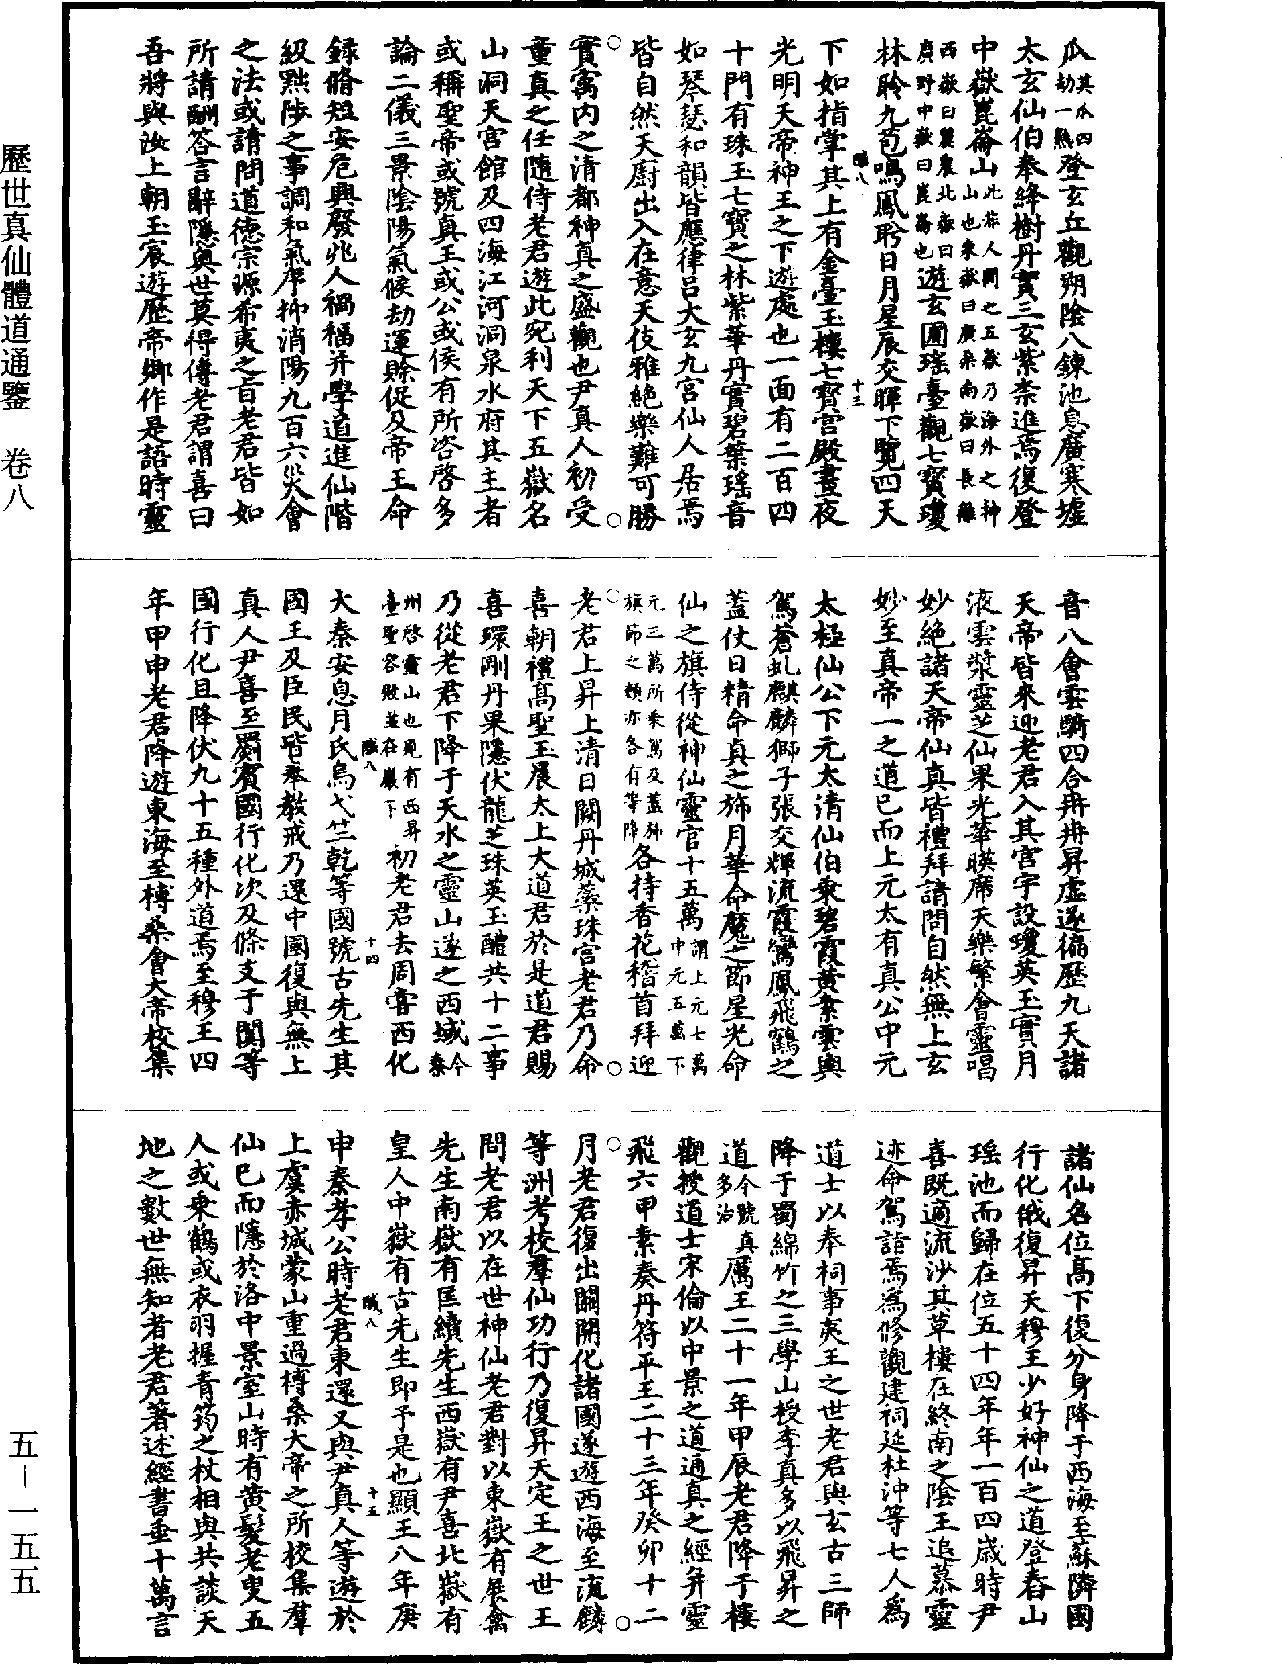 瓜其瓜四劫一熟登玄丘觀朔陰八鍊池息廣寒墟
太玄仙伯奉絳樹丹實三玄紫柰進焉復登
中嶽崑崙山此非人間之五嶽乃海外之神山也東嶽曰廣桑南嶽曰長離
西嶽曰麗農北嶽曰廣野中嶽曰崑崙也遊玄圃瑤臺觀七寶瓊
林聆九苞鳴鳳聆日月星辰交暉下覽四天
職八
十三
下如指掌其上有金臺玉樓七寶宮殿晝夜
光明天帝神王之下遊處也一面有二百四
十門有珠玉七寶之林紫華丹實碧葉瑤音
如琴瑟和韻皆應律呂大玄九宮仙人居焉
皆自然天廚出入在意天伎雅絕樂難可勝
實寓內之清都神真之盛觀也尹真人初受
童真之任隨侍老君遊此宛利天下五嶽名
山洞天宮館及四海江河洞泉水府其主者
或稱聖帝或號真王或公或侯有所咨啓多
論二儀三景陰陽氣候劫運賒促及帝王命
錄脩短安危興廢兆人禍福并學道進仙階
級黜陟之事調和氣序抑消陽九百六災會
之法或請問道德宗源希夷之旨老君皆如
所請酬答言辭隱奧世莫得傳老君謂喜曰
吾將與汝上朝玉宸遊歷帝鄉作是語時靈
音八會雲軿四合冉冉昇虛遂徧歷九天諸
天帝皆來迎老君入其宮宇設瓊英玉實月
液雲漿靈芝仙果光華暎席天樂繁會靈唱
妙絕諸天帝仙真皆禮拜請問自然無上玄
妙至真帝一之道已而上元太有真公中元
太極仙公下元太清仙伯乘碧霞黃素雲輿
駕蒼虬麒麟獅子張交輝流霞鸞鳳飛鶴之
蓋仗日精命真之旆月華命魔之節星光命
仙之旗侍從神仙靈官十五萬謂上元七萬中元五萬下
元三萬所乘駕及蓋旆旗節之類亦各有等降各持香花稽首拜迎
老君上昇上清日闕丹城蘂珠宮老君乃命
喜朝禮高聖玉晨太上大道君於是道君賜
喜環剛丹果隱伏龍芝珠英玉醴共十二事
乃從老君下降于天水之靈山遂之西域今秦
州啓靈山也見有西昇臺聖容殿並在巖下初老君去周嘗西化
職八
十四
大秦安息月氏烏弋竺乾等國號古先生其
國王及臣民皆奉教戒乃還中國復與無上
真人尹喜至罽賓國行化次及條支于闐等
國行化且降伏九十五種外道焉至穆王四
年甲申老君降遊東海至榑桑會大帝校集
諸仙名位高下復分身降于西海至蘇隣國
行化俄復昇天穆王少好神仙之道登舂山
瑤池而歸在位五十四年年一百四歲時尹
喜既適流沙其草樓在終南之陰王追慕靈
迹命駕詣焉為修觀建祠延杜沖等七人為
道士以奉祠事夷王之世老君與玄古三師
降于蜀綿竹之三學山授李真多以飛昇之
道今號真多治厲王二十一年甲辰老君降于樓
觀授道士宋倫以中景之道通真之經并靈
飛六甲素奏丹符平王二十三年癸卯十二
月老君復出關開化諸國遂遊西海至流麟
等洲考校羣仙功行乃復昇天定王之世王
問老君以在世神仙老君對以東嶽有展禽
先生南嶽有匡續先生西嶽有尹喜北嶽有
皇人中嶽有古先生即予是也顯王八年庚
職八
十五
申秦孝公時老君東還又與尹真人等遊於
上虞赤城蒙山重過榑桑大帝之所校集羣
仙已而隱於洛中景室山時有黃髮老叟五
人或乘鶴或衣羽握青筠之杖相與共談天
地之數世無知者老君著述經書垂十萬言
歷世真仙體道通鑒 卷八
五—一五五